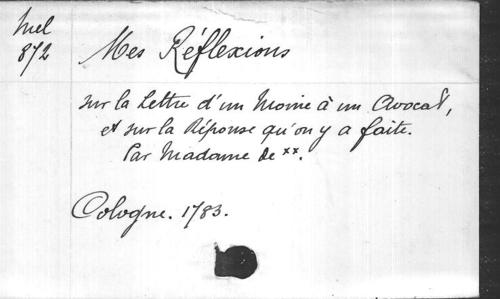 Mel
872
Mes Réflexions
sur la Lettre d'un Moine à un Avocat,
et sur la Réponse qu'on y a faite.
Par Madame de xx.
Cologne. 1783.